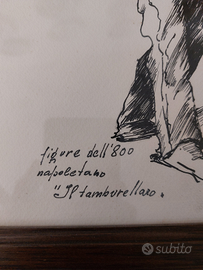 figure dell'800
napoletano
"Il tamburellaro.
subito